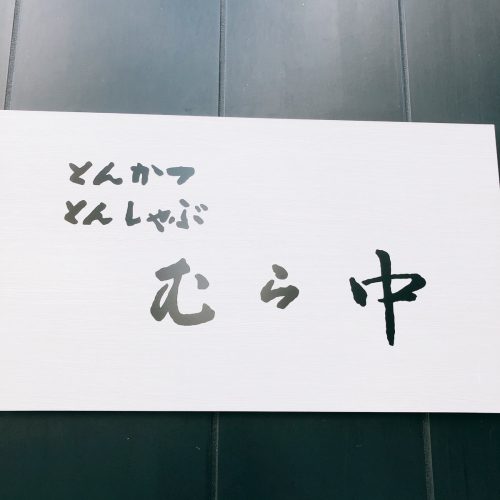 とんかつ
とんしゃぶ
むら中